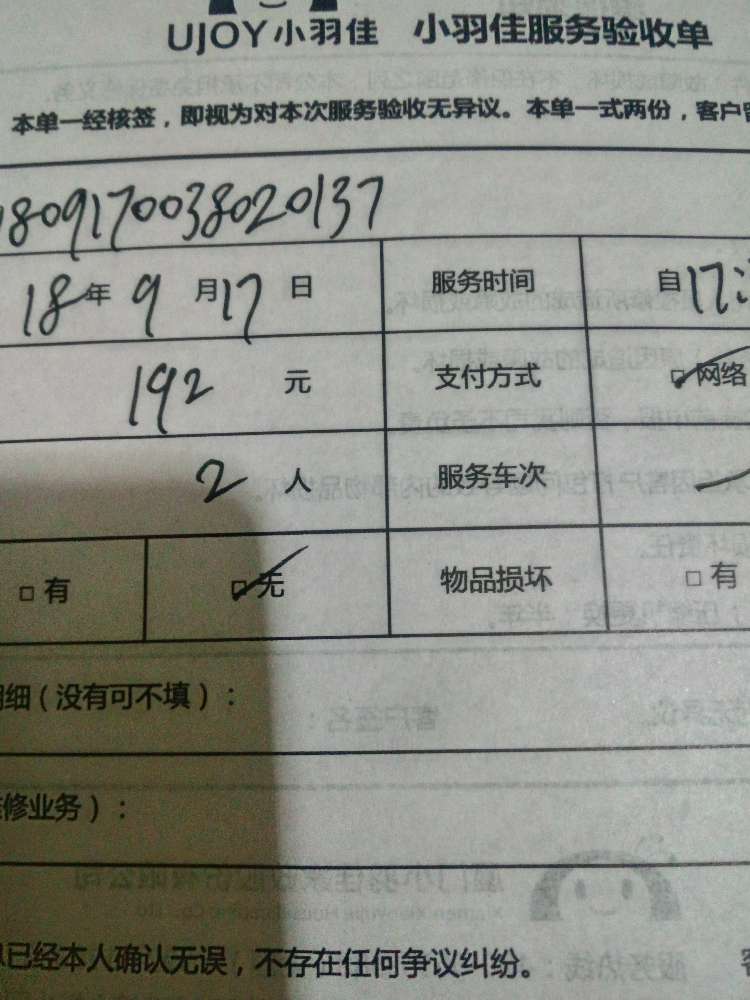 UJOY小羽佳 小羽佳服务验收单
本单一经核签，即视为对本次服务验收无异议。本单一式两份，客户
1809170038020137
18年9月17日 服务时间 自17:
192元 支付方式 网络
2人 服务车次
□有 □无 物品损坏 □有
细（没有可不填）：
修业务）：
已经本人确认无误，不存在任何争议纠纷。